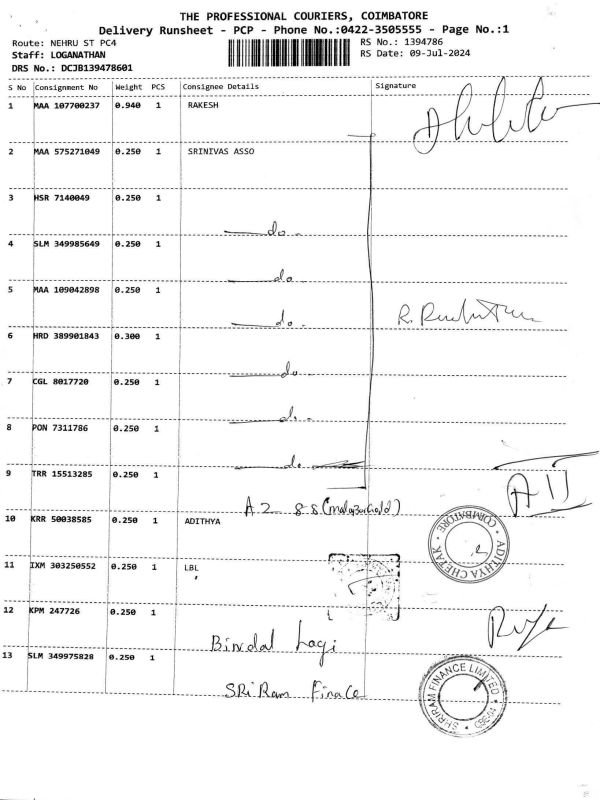 THE PROFESSIONAL COURIERS, COIMBATORE
Delivery Runsheet - PCP - Phone No.:0422-3505555 - Page No.:1
Route: NEHRU ST PC4
RS No.: 1394786
Staff: LOGANATHAN
RS Date: 09-Jul-2024
DRS No.: DCJB139478601
S No Consignment No Weight PCS Consignee Details Signature
1 MAA 107700237 0.940 1 RAKESH
2 MAA 575271049 0.250 1 SRINIVAS ASSO
3 HSR 7140049 0.250 1
do
4 SLM 349985649 0.250 1
do
5 MAA 109042898 0.250 1
do
6 HRD 389901843 0.300 1
do
7 CGL 8017720 0.250 1
do
8 PON 7311786 0.250 1
do
9 TRR 15513285 0.250 1
A2 8s
10 KRR 50038585 0.250 1 ADITHYA
COIMBATORE
ADITHYA CHETAK
11 IXM 303250552 0.250 1 LBL
12 KPM 247726 0.250 1
Bindal Logi
13 SLM 349975828 0.250 1
SRiRam Finace
SHRIRAM FINANCE LIMITED